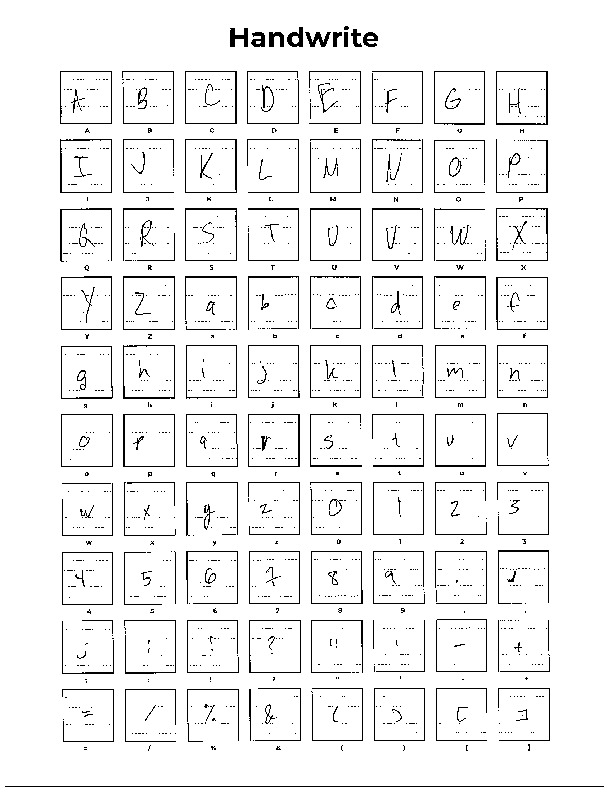 Handwrite
A B C D E F G H
A B C D E F G H
I J K L M N O P
I J K L M N O P
Q R S T U V W X
Q R S T U V W X
Y Z a b c d e f
Y Z a b c d e f
g h i j k l m n
g h i j k l m n
o p q r s t u v
o p q r s t u v
w x y z 0 1 2 3
w x y z 0 1 2 3
4 5 6 7 8 9 .
4 5 6 7 8 9 . ,
; : ! ? " ' - +
; : ! ? " ' - +
= / % & ( ) [ ]
= / % & ( ) [ ]